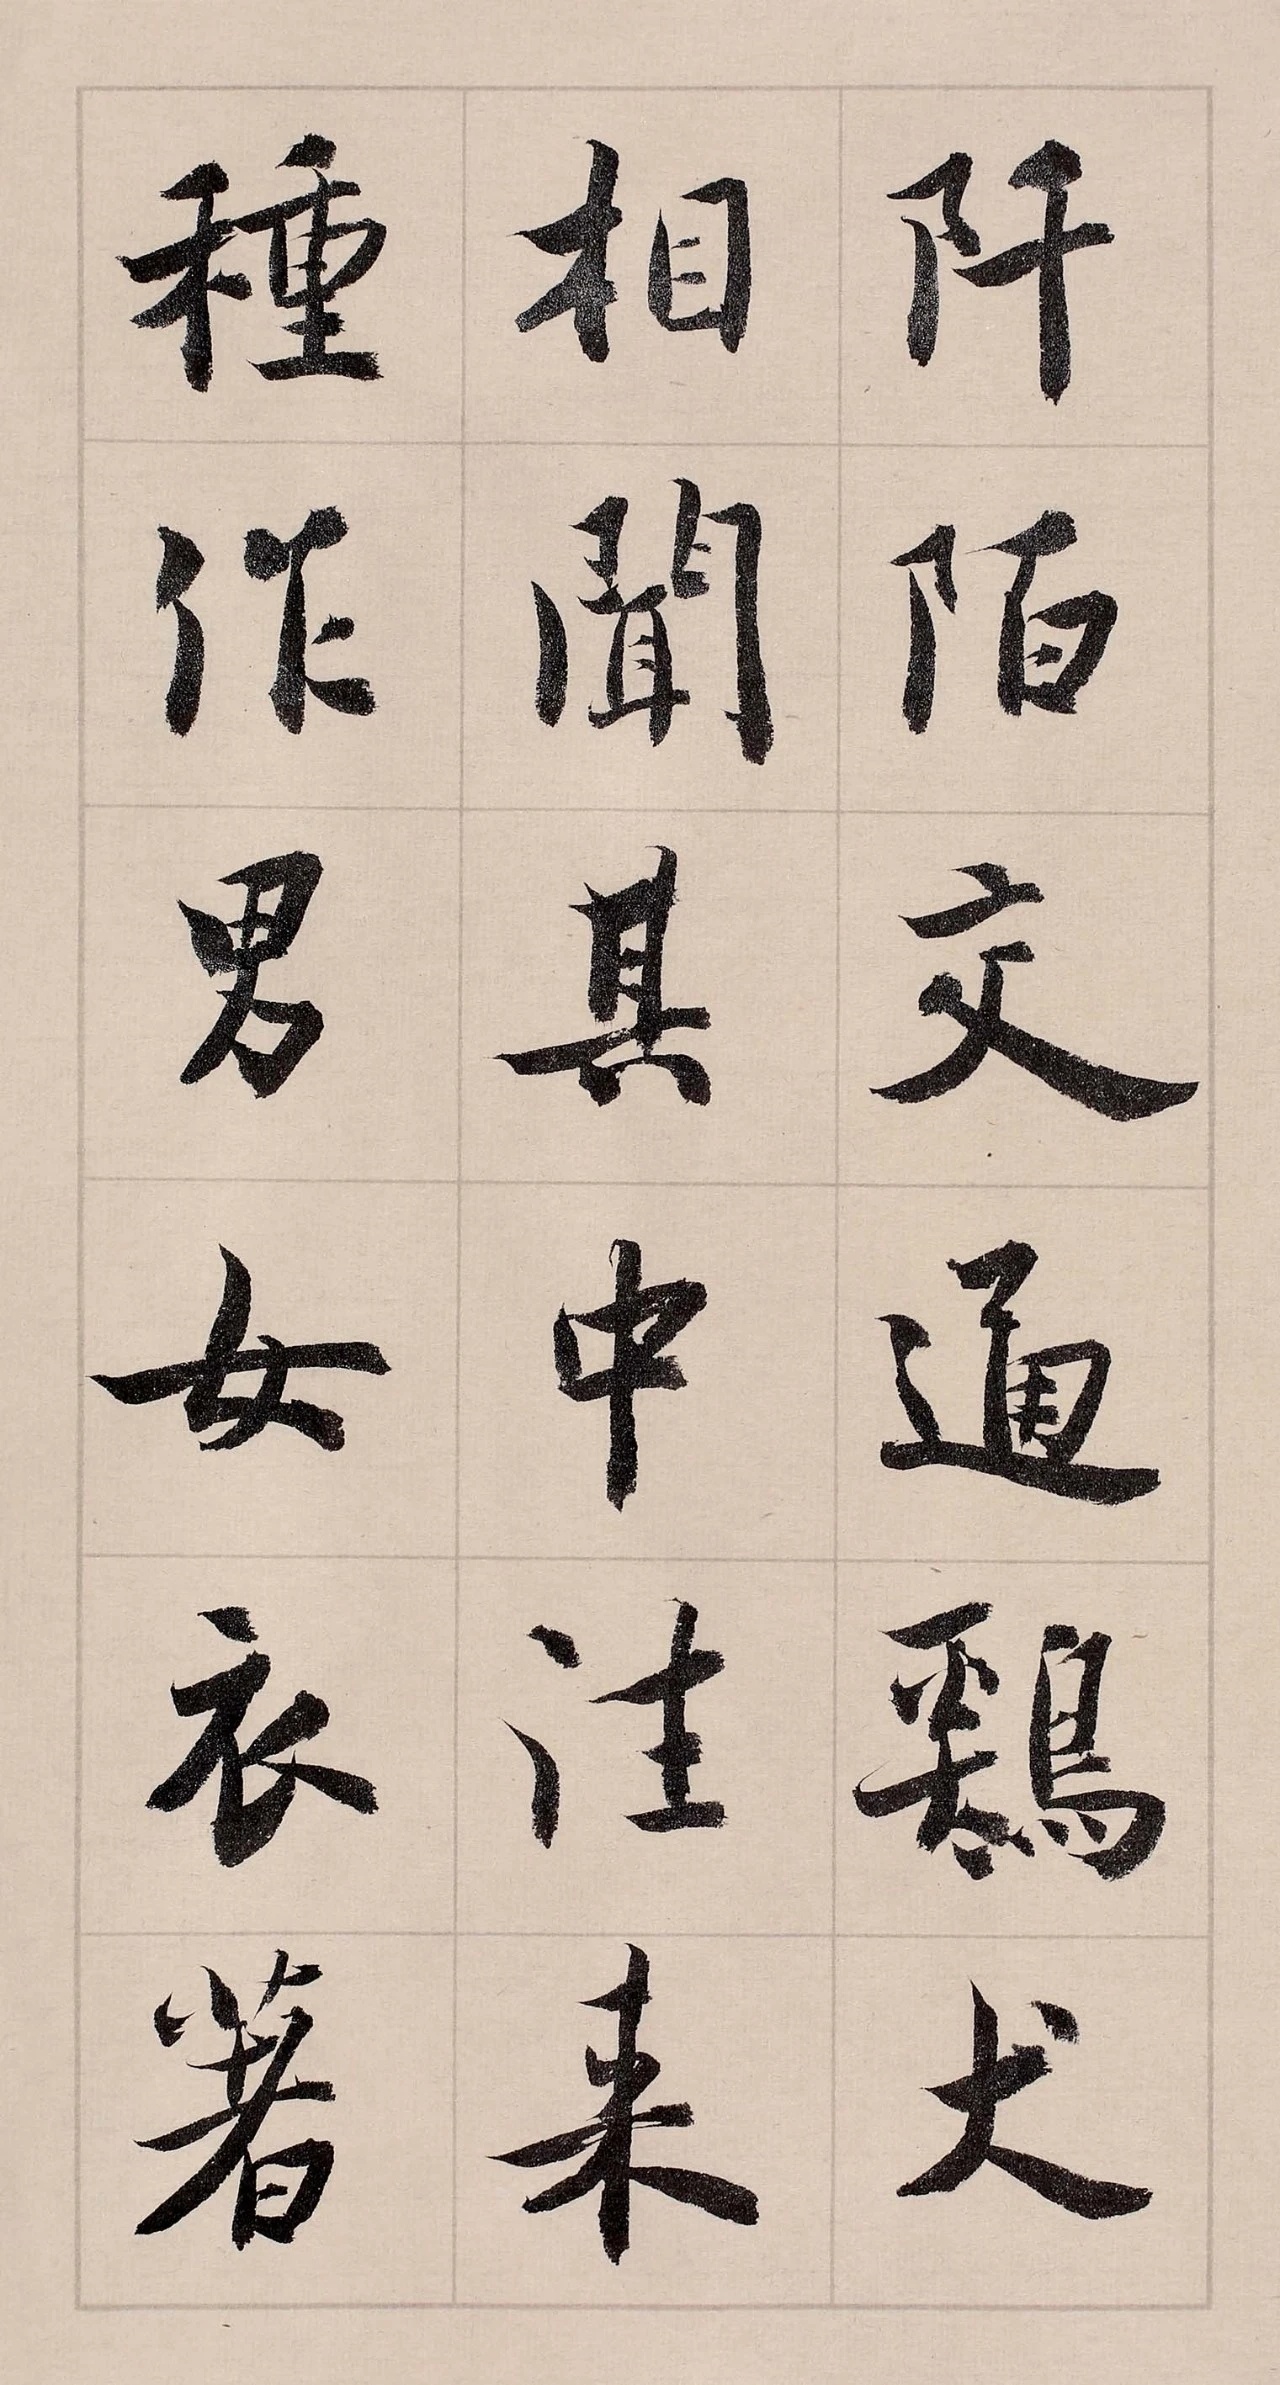 阡陌交通鷄犬
相聞其中往来
種作男女衣著